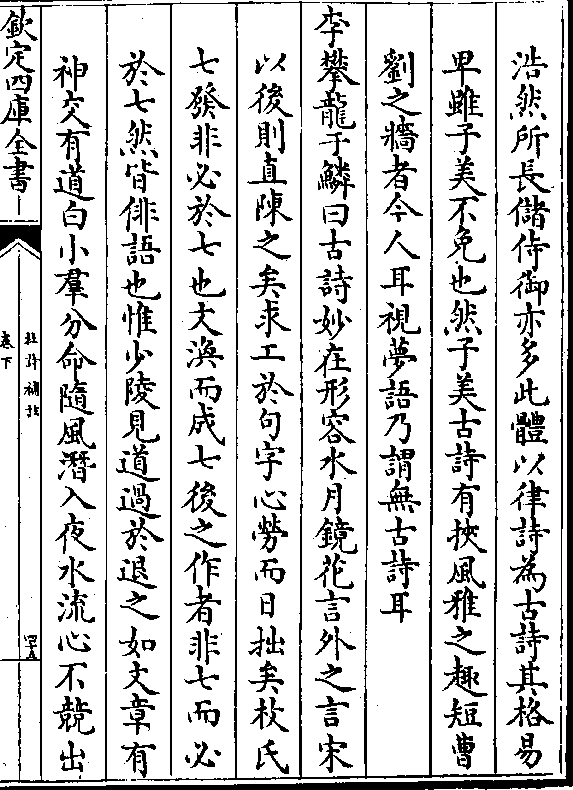 浩然所長儲侍御亦多此體以律詩為古詩其格易
卑雖子美不免也然子美古詩有挾風雅之趣短曹
劉之牆者今人耳視夢語乃謂無古詩耳
李攀龍于鱗曰古詩妙在形容水月鏡花言外之言宋
以後則直陳之矣求工於句字心勞而日拙矣枚氏
七發非必於七也文渙而成七後之作者非七而必
於七然皆俳語也惟少陵見道過於退之如文章有
神交有道白小羣分命隨風潛入夜水流心不競出
欽定四庫全書
杜詩補註
卷下
四十五